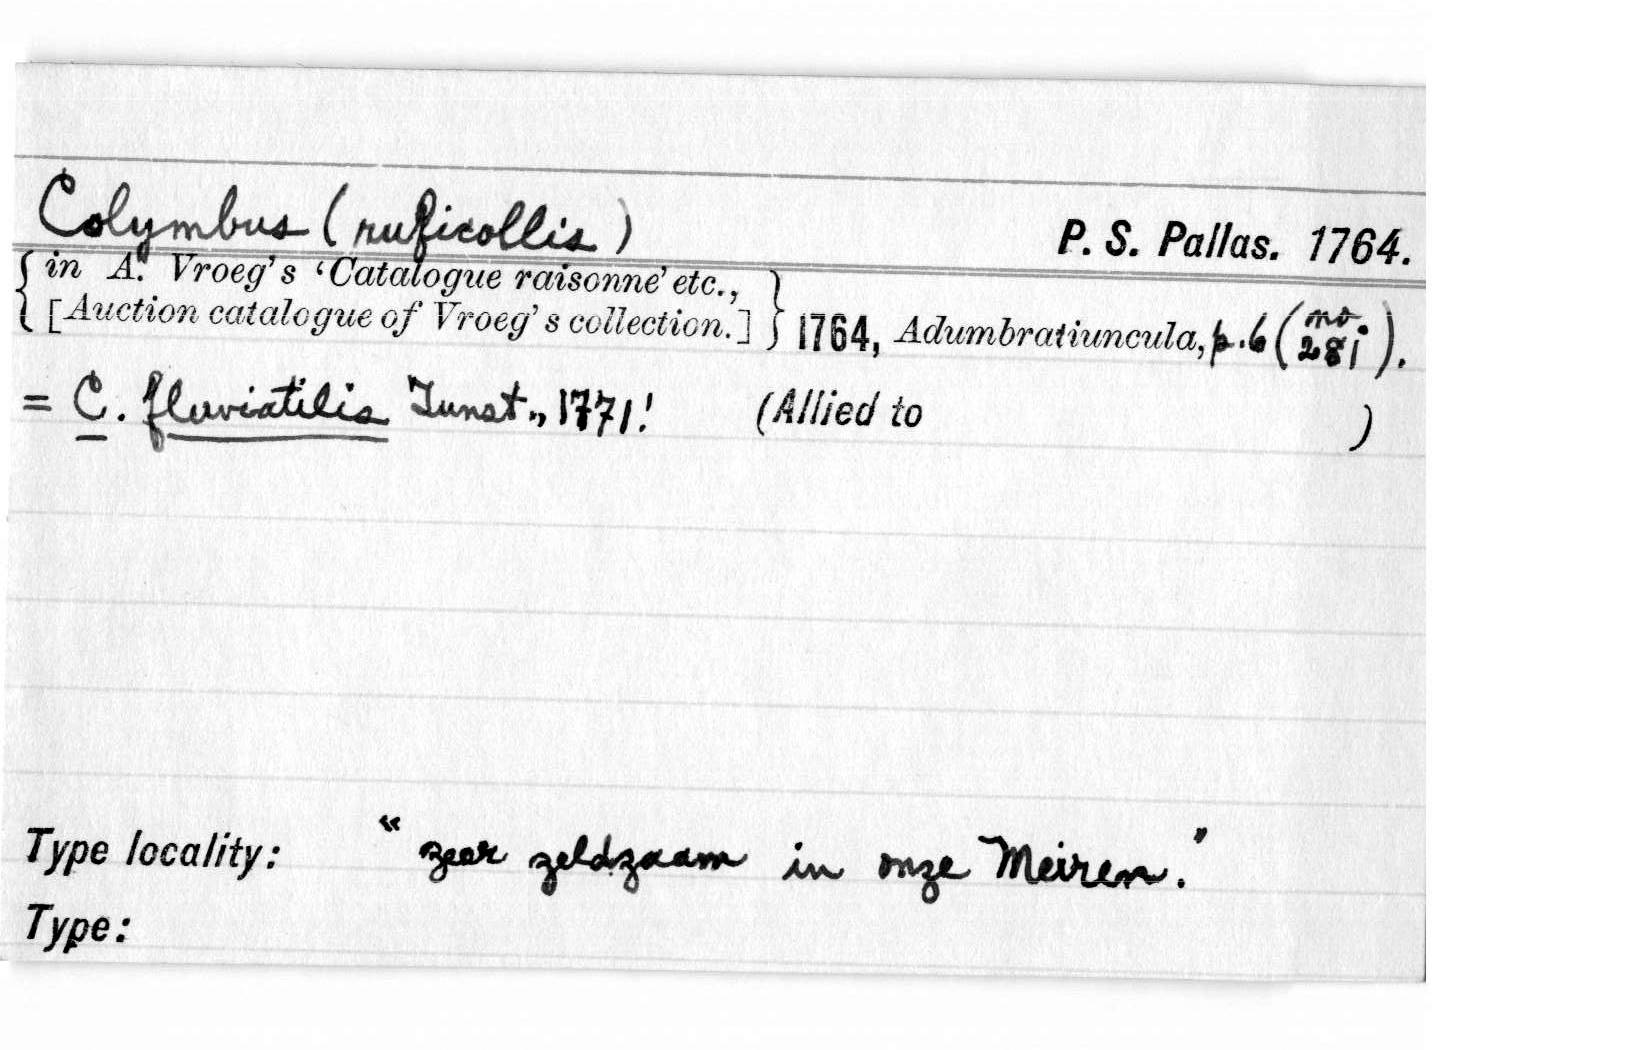 Colymbus (ruficollis) P. S. Pallas. 1764.
{ in A. Vroeg's ‘Catalogue raisonne’ etc.,
[Auction catalogue of Vroeg's collection.] } 1764, Adumbratiuncula, p. 6 (no. 281).
= C. fluviatilis Tunst., 1771! (Allied to )
Type locality: “zeer zeldzaam in onze Meiren.”
Type: